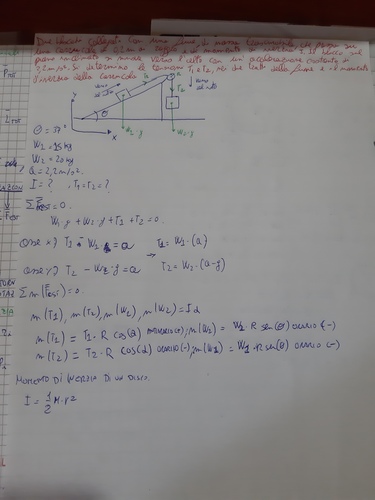 Due blocchi collegati con una fune di massa trascurabile, che passa su
una carrucola di 0,2 m di raggio e un momento di inerzia I. Il blocco sul
piano inclinato si muove verso l'alto con un' accelerazione costante di
2,2 m/s². Si determinino le tensioni T1 e T2, nei due tratti della fune e il momento
d'inerzia della carrucola.
y
x
θ
T1
T2
W1·g
W2·g
θ = 37°
W1 = 15 kg
W2 = 20 kg
a = 2,2 m/s².
I = ? , T1 = T2 = ?
Σ F = 0.
W1·g + W2·g + T1 + T2 = 0.
Asse x) T1 - W1·g = a T1 = W1·(a)
Asse y) T2 - W2·g = a → T2 = W2·(a-g)
Σ m(F) = 0
m(T1), m(T2), m(W1), m(W2) = Iα
m(T1) = T1·R cos(α) antiorario(+), m(W1) = W1·R sen(θ) orario (-)
m(T2) = T2·R cos(α) orario(-), m(W2) = W2·R sen(θ) orario (-)
MOMENTO DI INERZIA DI UN DISCO.
I = 1/2 M·r²